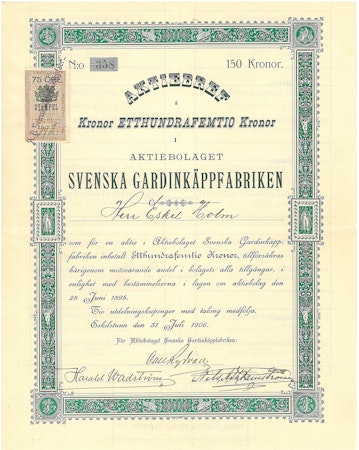 N:o 358 150 Kronor.
75 ÖRE
STÄMPEL
AKTIEBREF
å
Kronor ETTHUNDRAFEMTIO Kronor
i
AKTIEBOLAGET
SVENSKA GARDINKÄPPFABRIKEN
Herr Eskil Holm
som för en aktie i Aktiebolaget Svenska Gardinkäpp-
fabriken inbetalt Etthundrafemtio Kronor, tillförsäkras
härigenom motsvarande andel i bolagets alla tillgångar, i
enlighet med bestämmelserna i lagen om aktiebolag den
28 Juni 1895.
Tio utdelningskuponger med talong medfölja.
Eskilstuna den 31 Juli 1906.
För Aktiebolaget Svenska Gardinkäppfabriken:
Harald Wadström